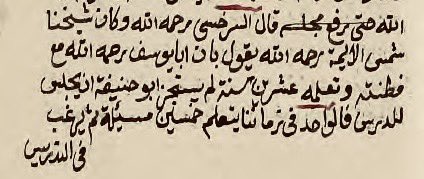 الله حتى يرفع مجلسه قال السرخسى رحمه الله وكان شيخنا
شمس الايمة رحمه الله يقول بان ابا يوسف رحمه الله مع
فطنته وتعلمه عشرين سنة لم يستجز ابو حنيفة ان يجلس
للدرس فالواحد فى زماننا يتعلم خمسين مسئلة ثم يرغب
فى التدريس